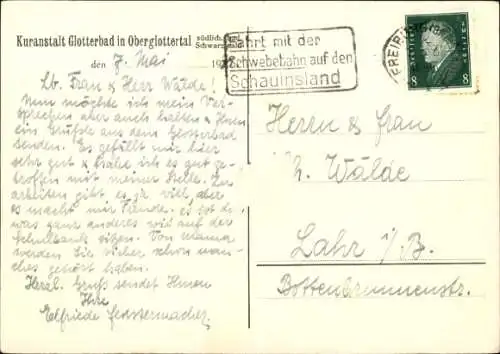 Kuranstalt Glotterbad in Oberglottertal südlich. bad.
Schwarzwald
den 7. Mai 19
Lb. Frau & Herr Wälde!
Nun möchte ich mein Ver-
sprechen aber auch halten & Ihnen
ein Grüßle aus dem Glotterbad
senden. Es gefällt mir hier
sehr gut & habe ich es gut ge-
troffen mit meiner Stelle. Zu
arbeiten gibt es ja viel, aber
es macht mir Freude. es ist doch
was ganz anderes wie auf der
Schulbank sitzen. Von Mama
werden Sie sicher schon man-
ches gehört haben.
Herzl. Gruß sendet Ihnen
Ihre
Elfriede Fenstermacher.
Fahrt mit der
Schwebebahn auf den
Schauinsland
FREIBURG
DEUTSCHES REICH
8 8
Herrn & Frau
Wälde
Lahr i/B.
Bottenbrunnenstr.